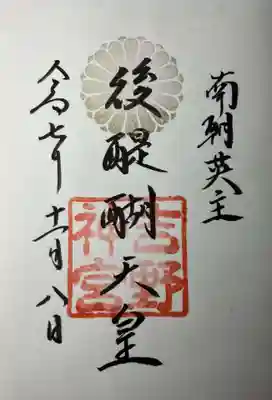 南朝英主
後醍醐天皇
吉野神宮
令和七年十一月八日